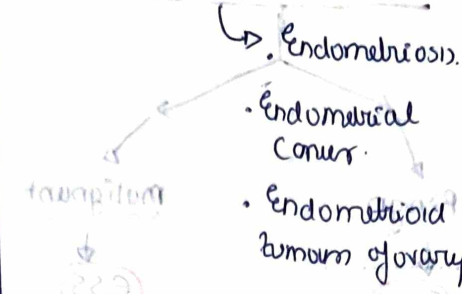 . Endometriosis.
. Endometrial
Cancer.
. Endometrioid
tumours of ovary
malignant